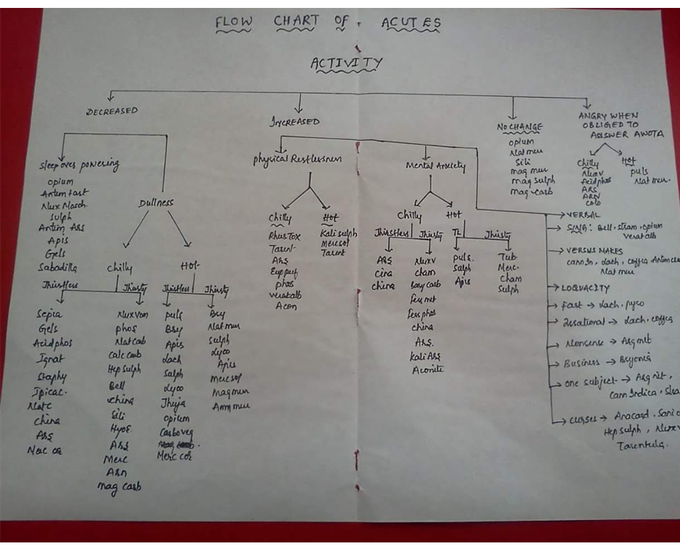 FLOW CHART OF ACUTES
ACTIVITY
DECREASED
Sleep over powering
opium
Antim tart
Nux Mosch
Sulph
Antim Ars
Apis
Gels
Sabadilla
Dullness
Chilly
Thirstless
Sepia
Gels
Acid phos
Ignat
Staphy
Ipicac
china
Ars
Merc cor
Thirsty
Nux vom
phos
Nat carb
calc carb
Hep sulph
Bell
china
Sili
Hyos
Ars
Merc
ARN
mag carb
Hot
Thirstless
puls
Bry
Apis
Lach
Salph
Lyco
Thuja
opium
Carboveg
Merc cor
Thirsty
Bry
Nat mur
Sulph
Lyco
Apis
merc sol
Mag mur
Amm mur
INCREASED
Physical Restlessness
Chilly
Rhus Tox
Tarent
Ars
Eup perf
phos
veratalb
Acon
Hot
Kali sulph
Merc sol
Tarent
Mental Anxiety
Chilly
Thirstless
ARS
cina
china
Thirsty
Nuxv
cham
bary carb
Fer met
Fer phos
china
Ars.
Kali Ars
Aconite
Hot
TL
puls.
Salph
Apis
Thirsty
Tub
Merc
Cham
Sulph
NO CHANGE
opium
Nat mur
Sili
mag mur
mag sulph
mag carb
ANGRY WHEN
OBLIGED TO
ANSWER
Chilly
Nuxv
Acid phos
ARS
ARN
Carb
Hot
puls
Nat mur
VERBAL
Bell, stram, opium
veratalb
VERSUS MAKES
cann In, Lach, coffea
Nat mur
LOQUACITY
Fast → Lach, pyro
→ Lach, coffea
Nonsense → Arg nit
Business → Bryonia
one subject → Arg nit,
Cann Indica,
curses → Anacard,
Hep sulph,
Tarentula.